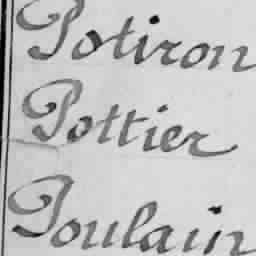 Potiron
Pottier
Poulain